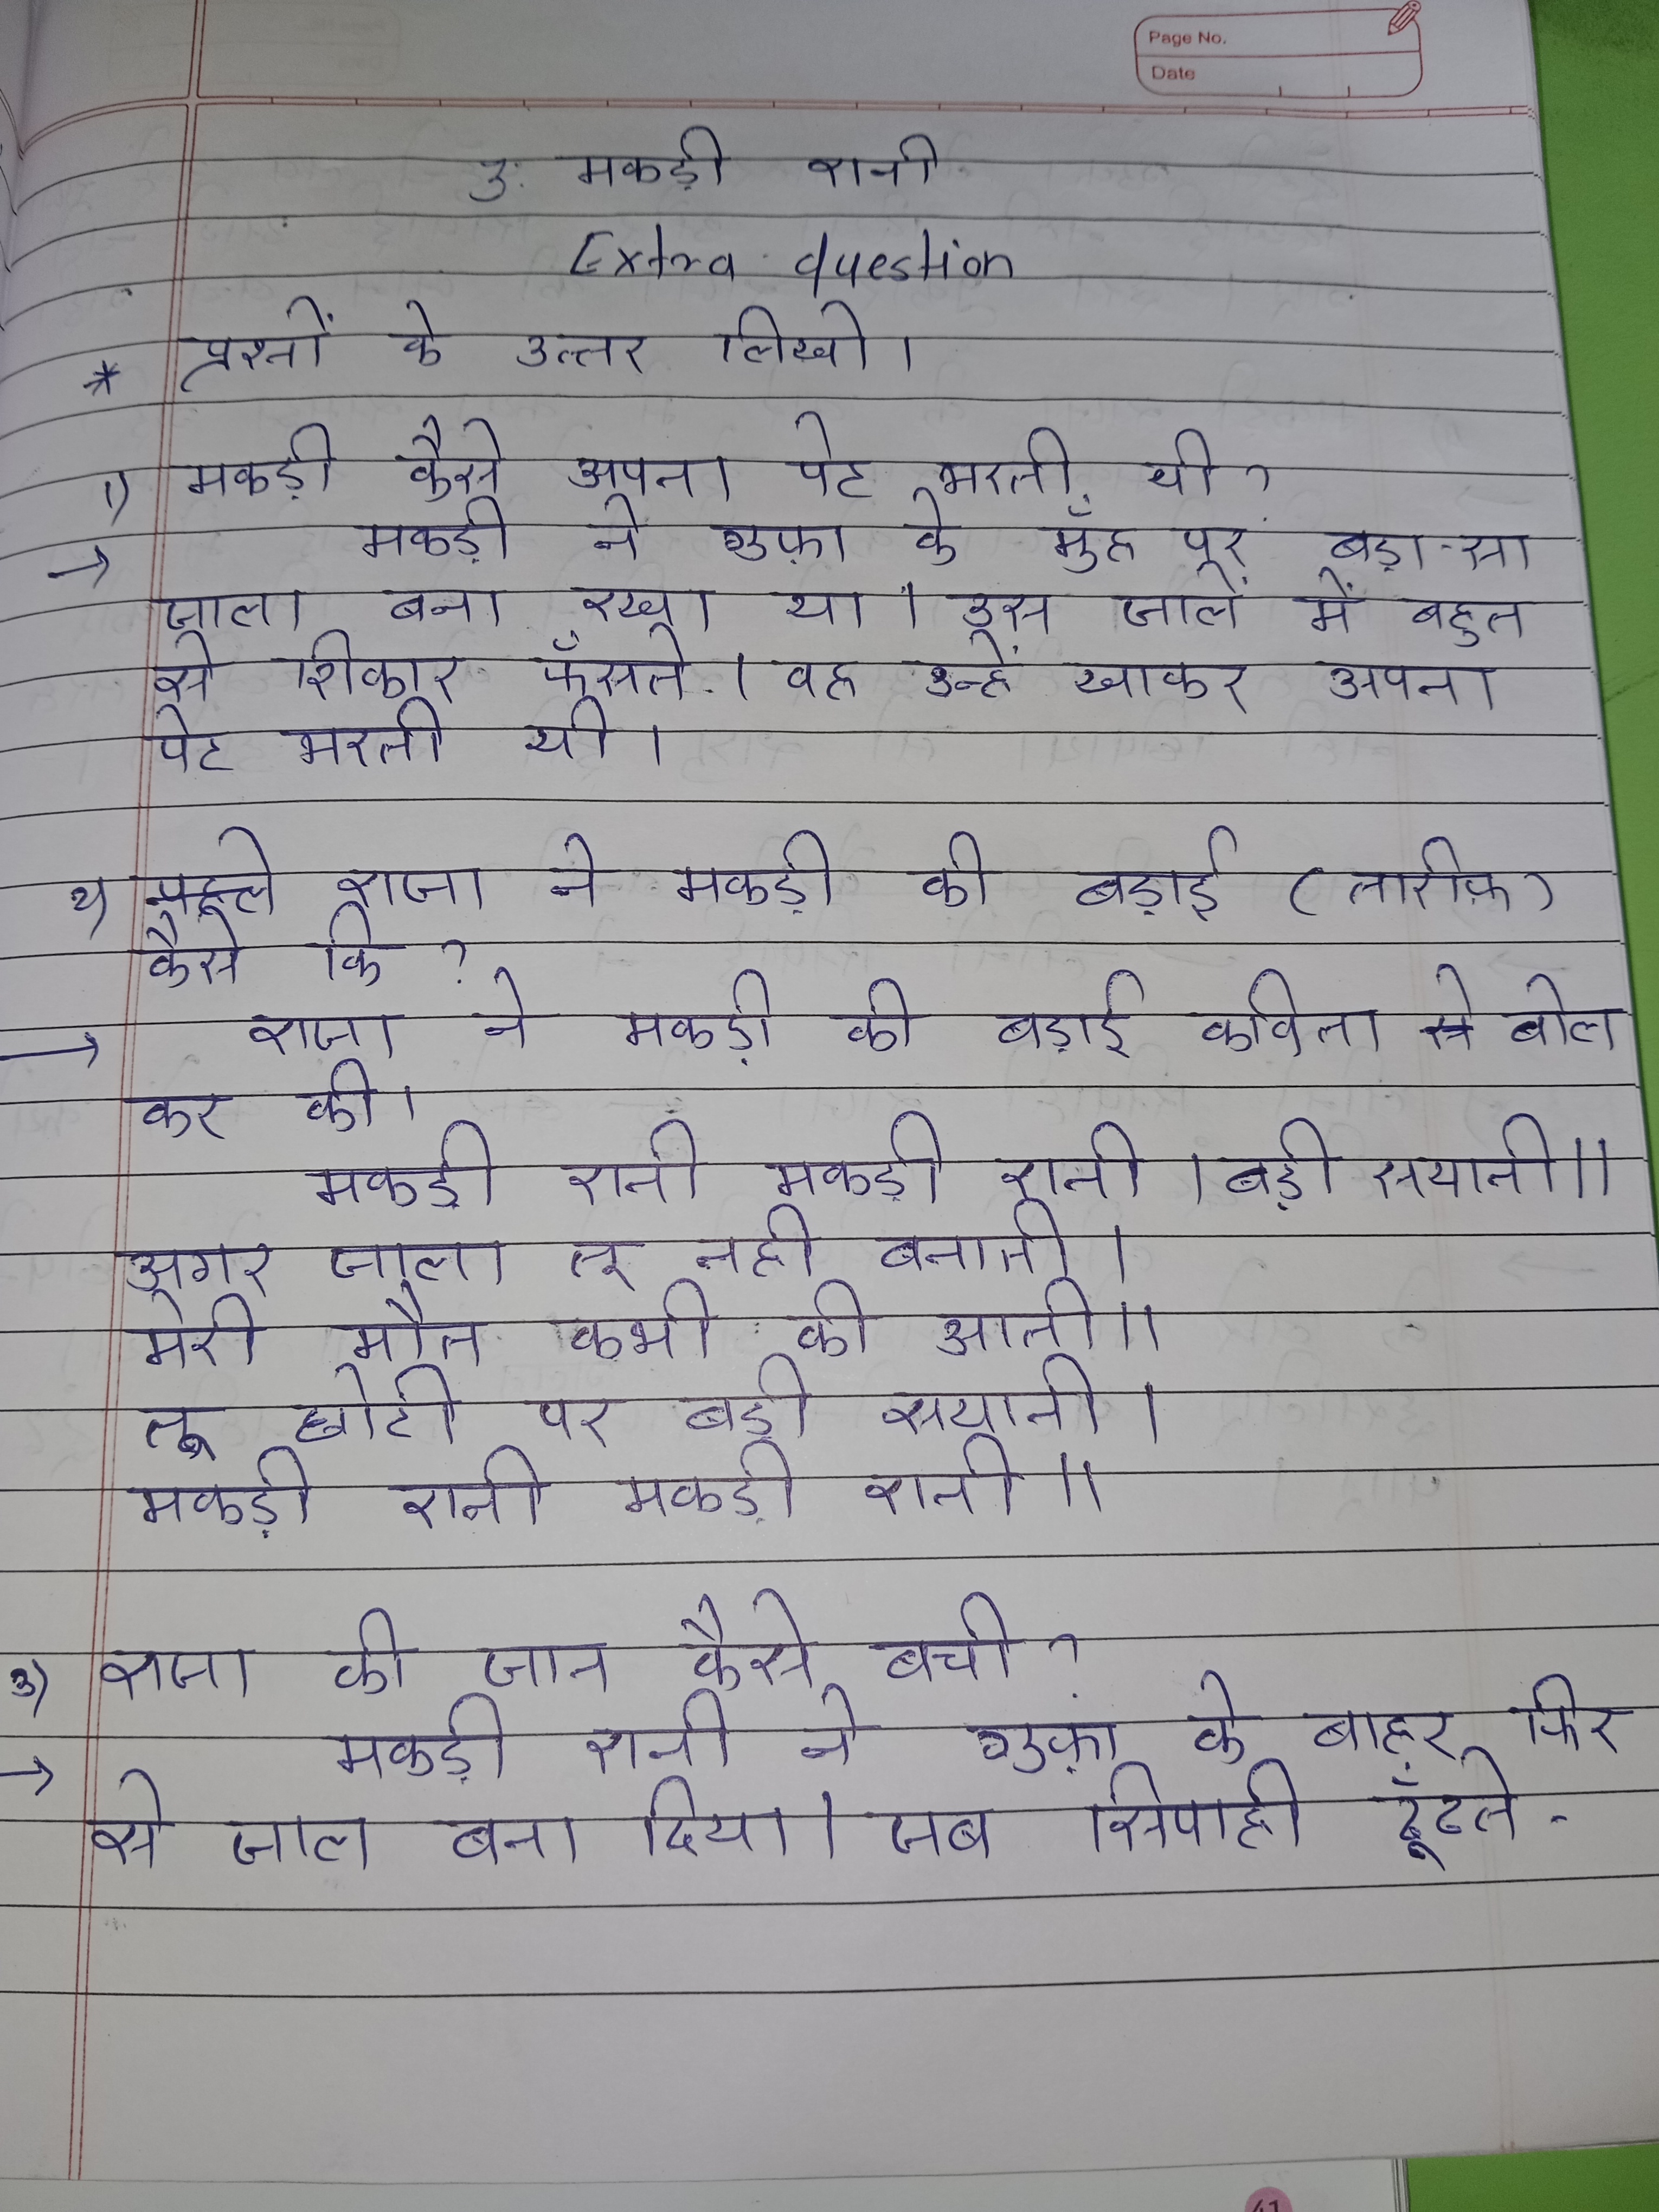 Page No.
Date
३. मकड़ी रानी
Extra question
* प्रश्नों के उत्तर लिखो।
१) मकड़ी कैसे अपना पेट भरती थी?
→ मकड़ी ने गुफ़ा के मुँह पर बड़ा-सा
जाला बना रखा था। उस जाले में बहुत
से शिकार फँसते। वह उन्हें खाकर अपना
पेट भरती थी।
२) पहले राजा ने मकड़ी की बड़ाई (तारीफ़)
कैसे कि?
→ राजा ने मकड़ी की बड़ाई कविता से बोल
कर की।
मकड़ी रानी मकड़ी रानी। बड़ी सयानी॥
अगर जाला तू नही बनाती।
मेरी मौत कभी की आती॥
तू छोटी पर बड़ी सयानी।
मकड़ी रानी मकड़ी रानी॥
३) राजा की जान कैसे बची?
→ मकड़ी रानी ने गुफ़ा के बाहर फिर
से जाल बना दिया। जब सिपाही ढूँढते-
41